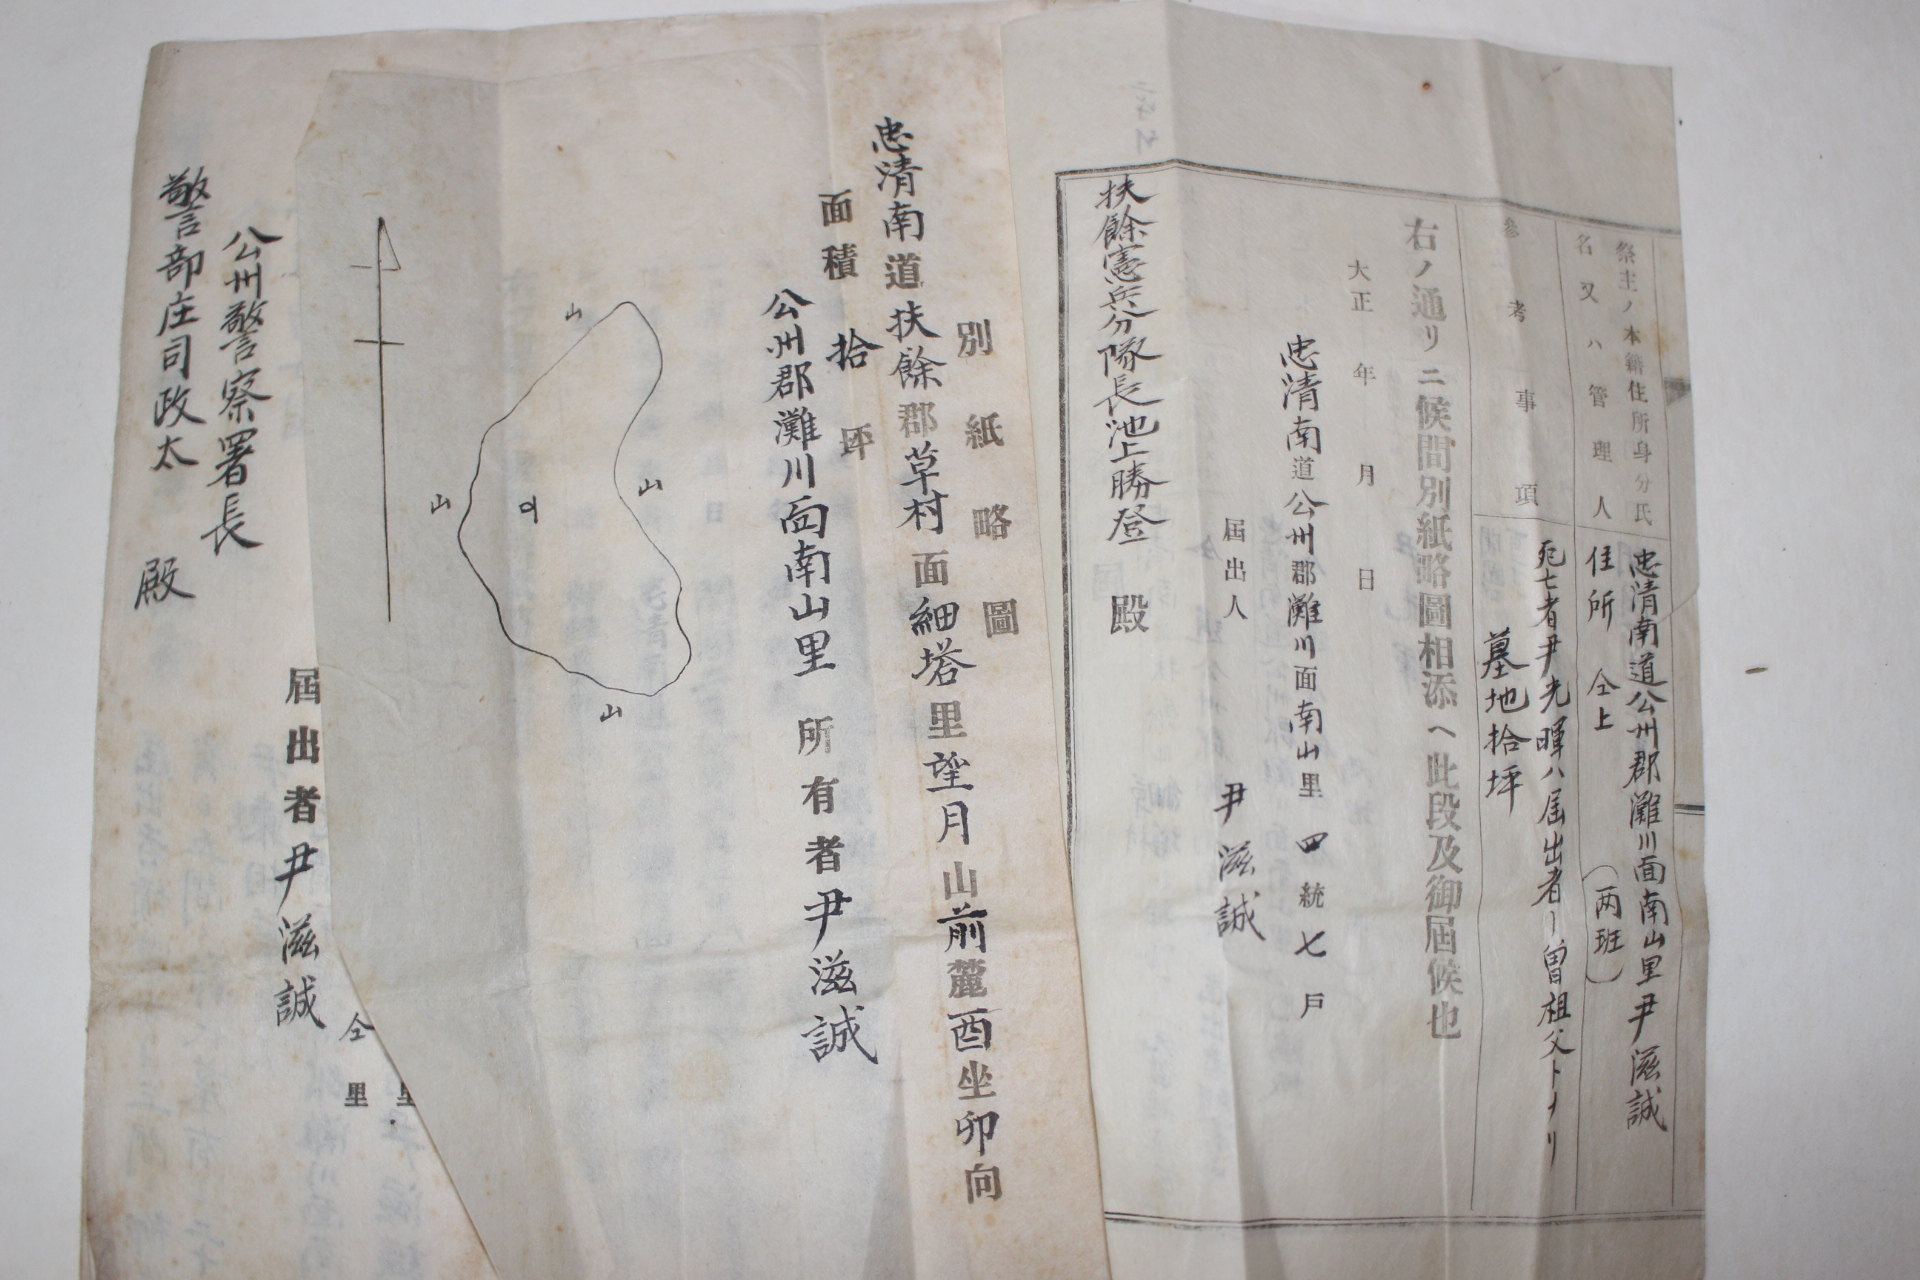 祭主ノ本籍住所身分氏
名又ハ管理人
忠清南道公州郡灘川面南山里尹滋誠
住所 仝上 (両班)
參考事項
死亡者尹光暉ハ届出者ノ曽祖父トナリ
墓地拾坪
右ノ通リニ候間別紙略圖相添ヘ此段及御屆候也
大正 年 月 日
忠清南道公州郡灘川面南山里四統七戸
屆出人 尹滋誠
扶餘憲兵分隊長池上勝登 殿
別紙略圖
忠清南道扶餘郡草村面細塔里望月山前麓酉坐卯向
面積 拾坪
公州郡灘川面南山里 所有者尹滋誠
山
山
山
山
仝里
里
屆出者尹滋誠
公州警察署長
警部庄司政太 殿